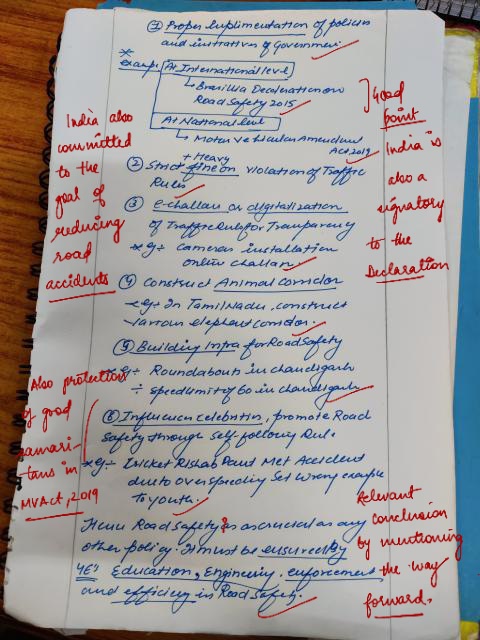 ① Proper Implimentation of policies
and initiatives of Government
*
Example
At International level
↳ Brasillia Decleration on
Road Safety 2015
At National level
↳ Motor Vehicular Amendment
Act, 2019
} Good
point
India is
also a
signatory
to the
Declaration
India also
committed
to the
goal of
reducing
road
accidents
+ Heavy
② Strict fine on violation of Traffic
Rules
③ E-challan or digitalization
of Traffic Rules for Transparency
* eg ÷ cameras installation
online challan
④ Construct Animal corridor
eg ÷ In Tamil Nadu, construct
various elephant corridor.
⑤ Building Infra for Road Safety
* eg ÷ Roundabouts in chandigarh
÷ speed limit of 60 in chandigarh
Also protection
of good
samari-
tans in
MV Act, 2019
⑥ Influencer celebrities, promote Road
Safety through self-following Rule
* eg ÷ Cricket Rishab Pant Met Accident
due to overspeeding set wrong example
to youth.
Hence Road Safety is as crucial as any
other policy. It must be ensured by
4E's Education, Engineering, enforcement
and efficiency in Road Safety.
Relevant
conclusion
by mentioning
the way
forward.